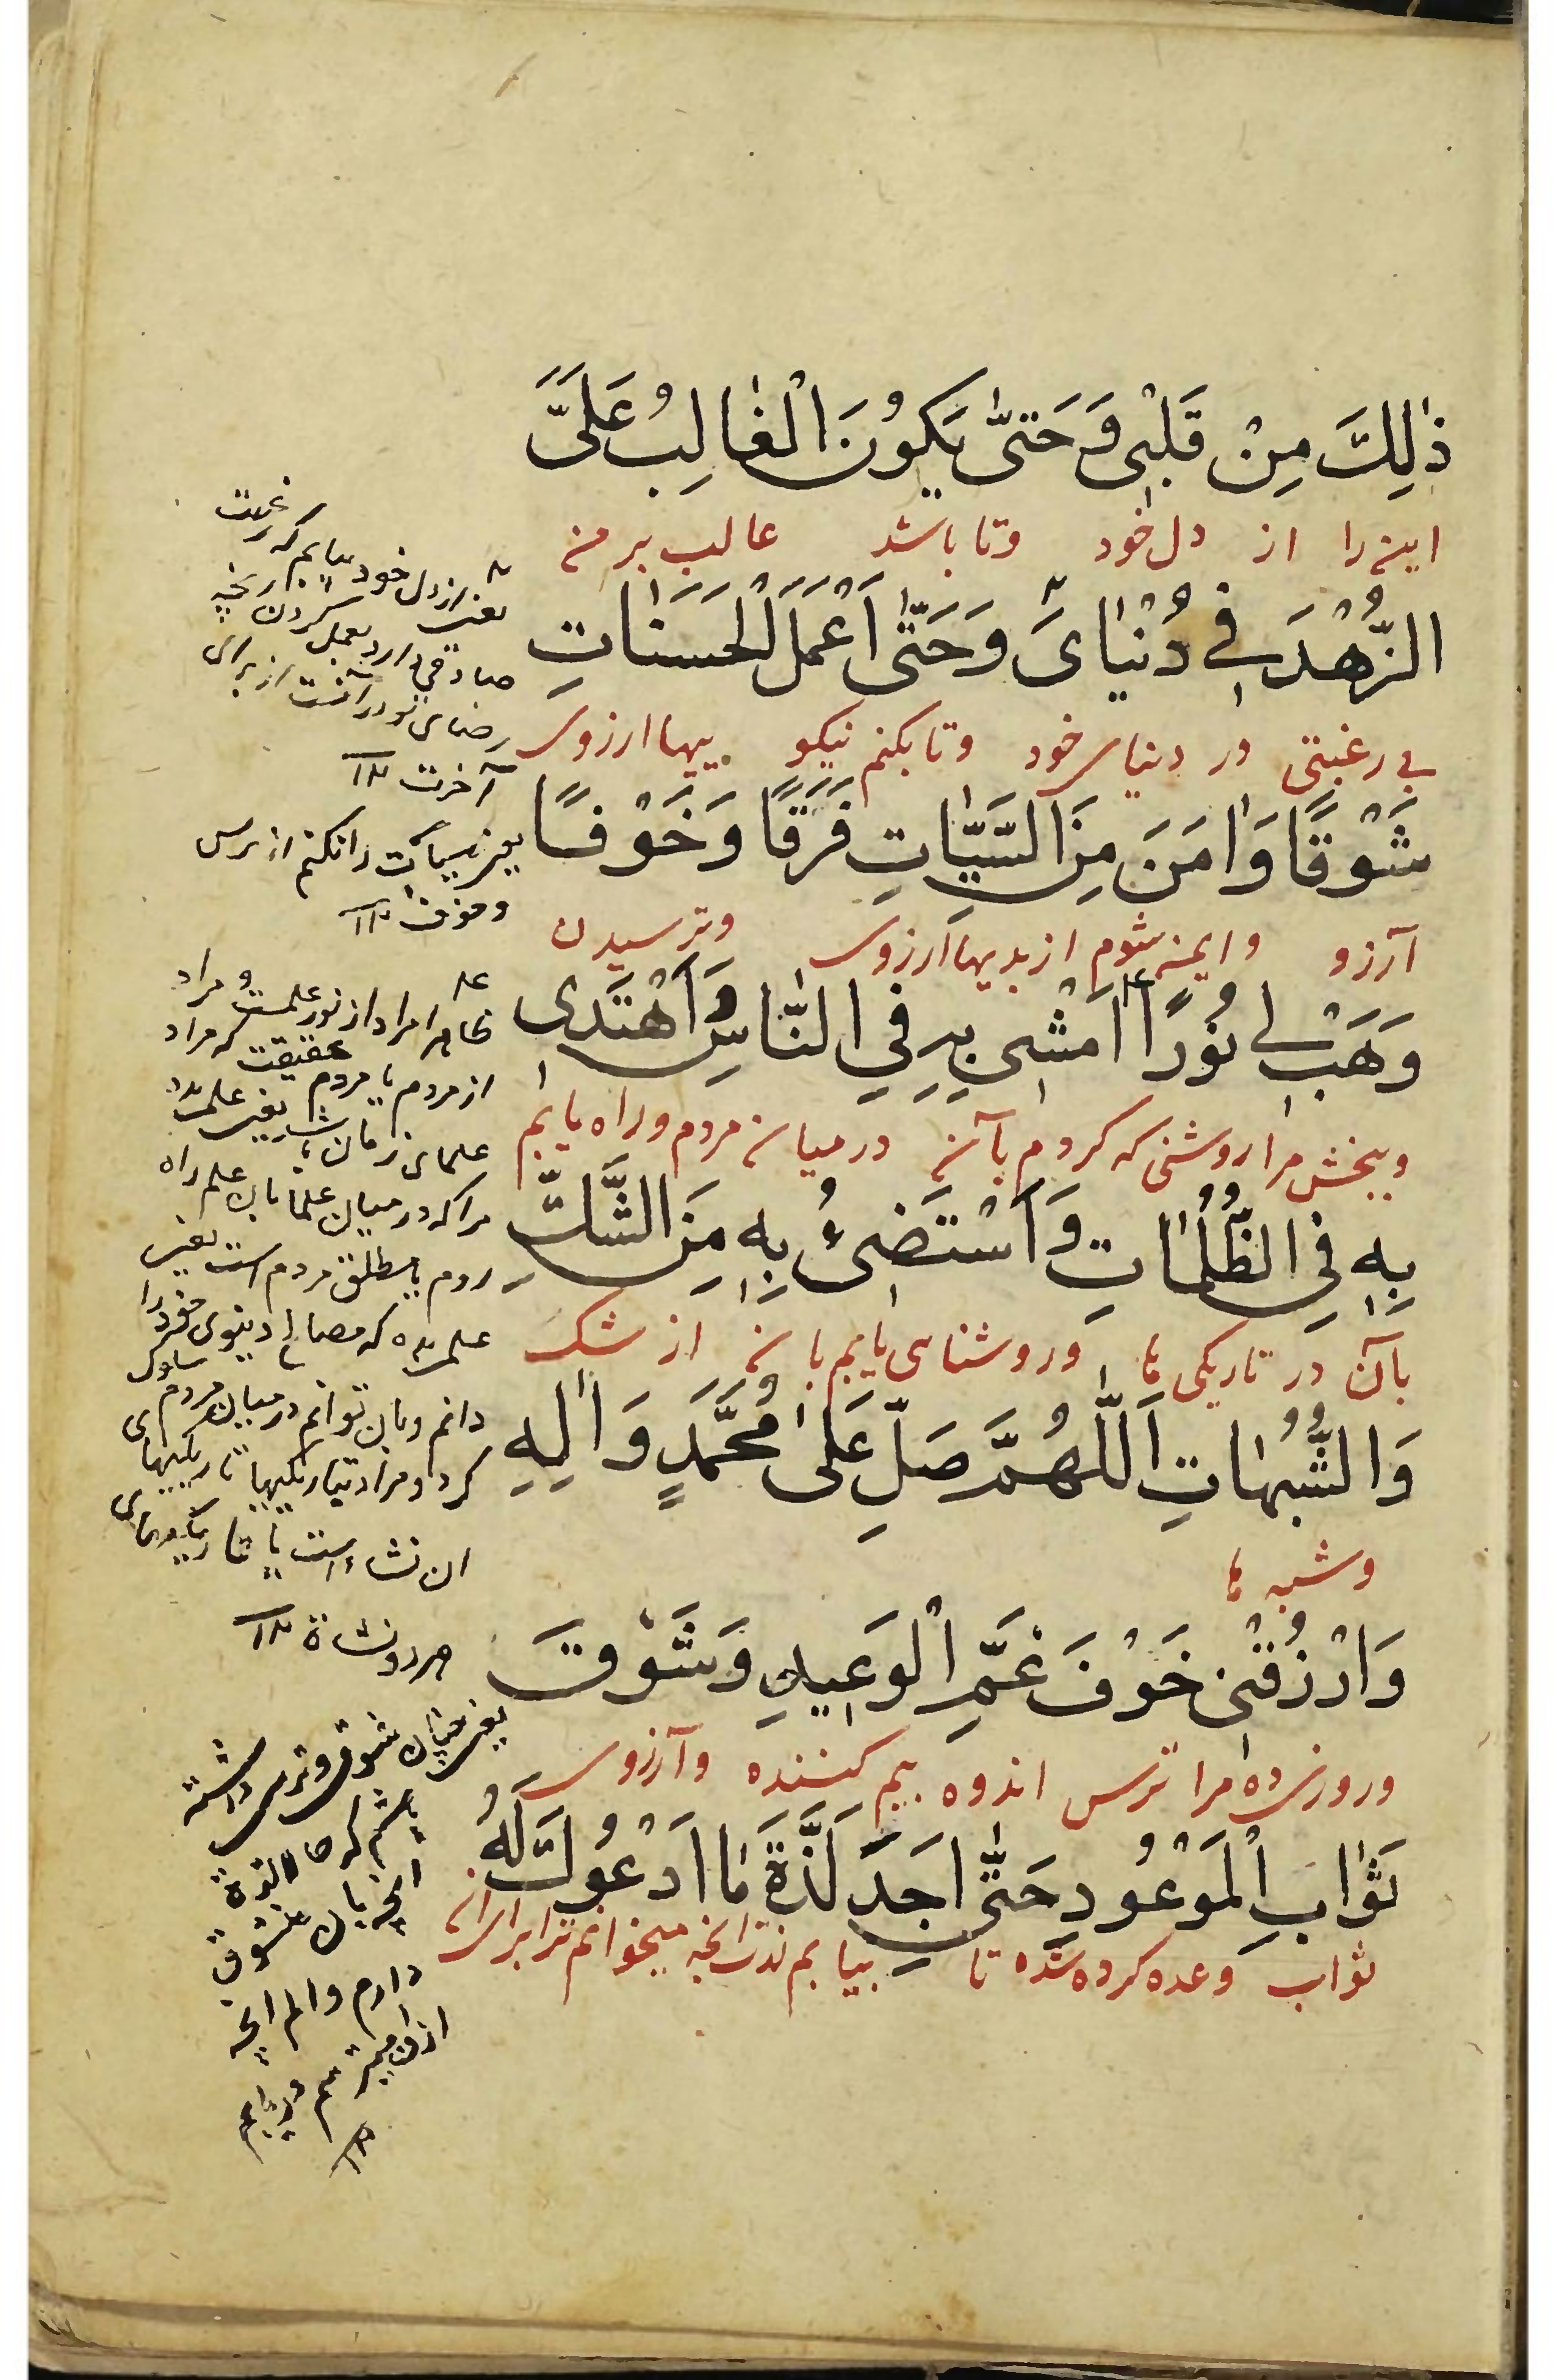 ذٰلِكَ مِنْ قَلْبِی وَحَتّیٰ یَكُونَ الْغٰالِبُ عَلَیَّ
اینرا از دل خود وتا باشد غالب بر من
الزُّهْدَ فِی دُنْیٰایَ وَحَتّیٰ اَعْمَلَ الْحَسَنٰاتِ
بی رغبتی در دنیای خود وتا بکنم نیکو ییها ارزوی
شَوْقًا وَاٰمَنَ مِنَ السَّیِّاٰتِ فَرَقًا وَخَوْفًا
آرزو و ایمن شوم از بدیها ارزوی وترسیدن
وَهَبْ لِی نُورًا اَمْشِی بِهِ فِی النّٰاسِ وَاَهْتَدِی
وببخش مرا روشنی که کردم بآن در میان مردم وراه یابم
بِهِ فِی الظُّلُمٰاتِ وَاَسْتَضِیءُ بِهِ مِنَ الشَّكِّ
بآن در تاریکی ها وروشنایی یابم بآن از شک
وَالشُّبُهٰاتِ اَللّٰهُمَّ صَلِّ عَلیٰ مُحَمَّدٍ وَاٰلِهِ
وشبه ها
وَارْزُقْنِی خَوْفَ غَمِّ الْوَعِیدِ وَشَوْقَ
وروزی ده مرا ترس اندوه بیم کننده وآرزوی
ثَوٰابِ الْمَوْعُودِ حَتّیٰ اَجِدَ لَذَّةَ مٰا اَدْعُوكَ لَهُ
ثواب وعده کرده شده تا بیابم لذت انچه میخوانم ترا برای ان
یعنی از دل خود بیابم که رغبت
صادقی دارد بعمل کردن انچه
رضای تو در آنست از برای
آخرت ۱۲
یعنی سیئات را نکنم از ترس
وخوف ۱۲
ظاهرا مراد از نور علمست و مراد
از مردم یا مردم حقیقت که مراد
علمای زمان باشد یعنی علمی ده
مرا که در میان علما بان علم راه
روم یا مطلق مردم است یعنی
علمی ده که مصالح دینوی خود را
دانم وبان توانم در میان مردم سلوک
کرد و مراد بتاریکیها تاریکیهای
ان نشاه است یا تاریکیهای
هر دو نشاة ۱۲
یعنی چنان شوق وترس داشته
باشم که حالا لذة
انچه بان شوق
دارم والم انچه
ازان میترسم دریابم
۱۲